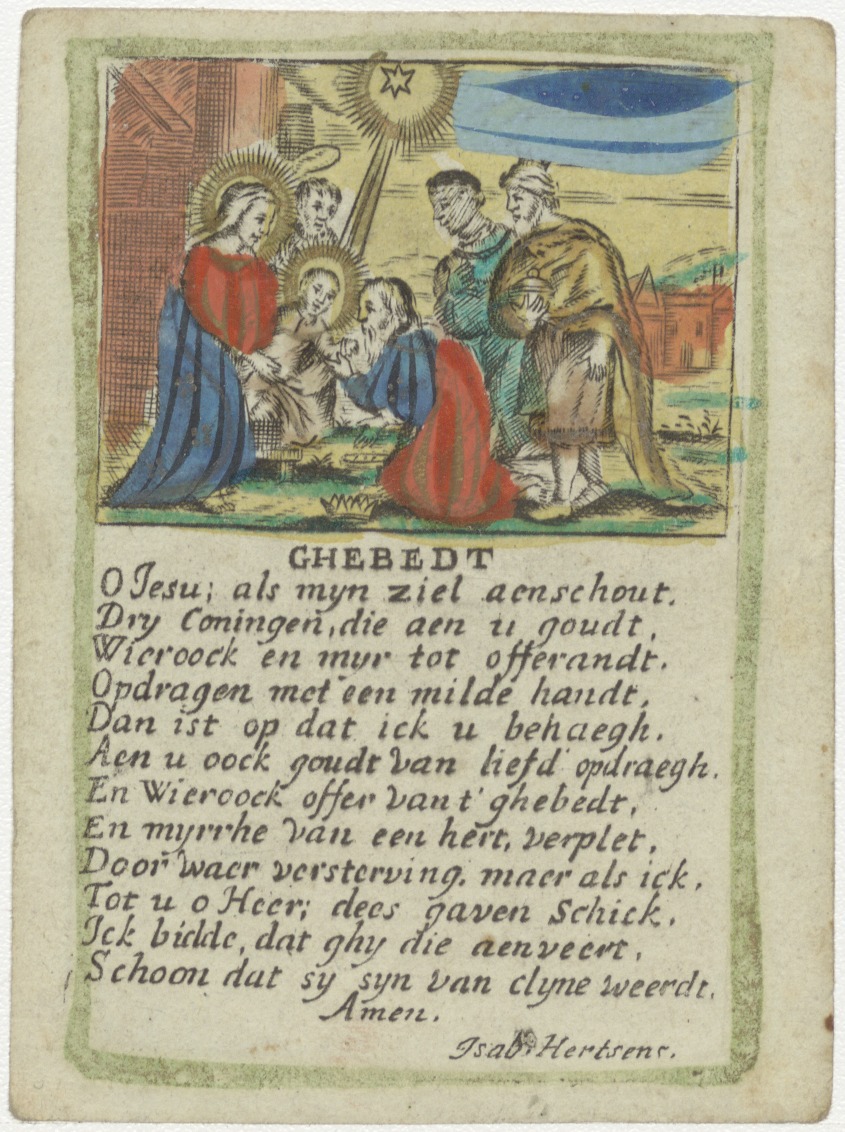 GHEBEDT
O Jesu; als myn ziel aenschout.
Dry Coningen, die aen u goudt,
Wieroock en myr tot offerandt.
Opdragen met een milde handt,
Dan ist op dat ick u behaegh.
Aen u oock goudt van liefd' opdraegh.
En Wieroock offer van t' ghebedt,
En myrrhe van een hert, verplet,
Door waer versterving. maer als ick,
Tot u o Heer; dees gaven Schick.
Ick bidde, dat ghy die aenveert,
Schoon dat sy syn van clyne weerdt.
Amen.
Isab. Hertsens.